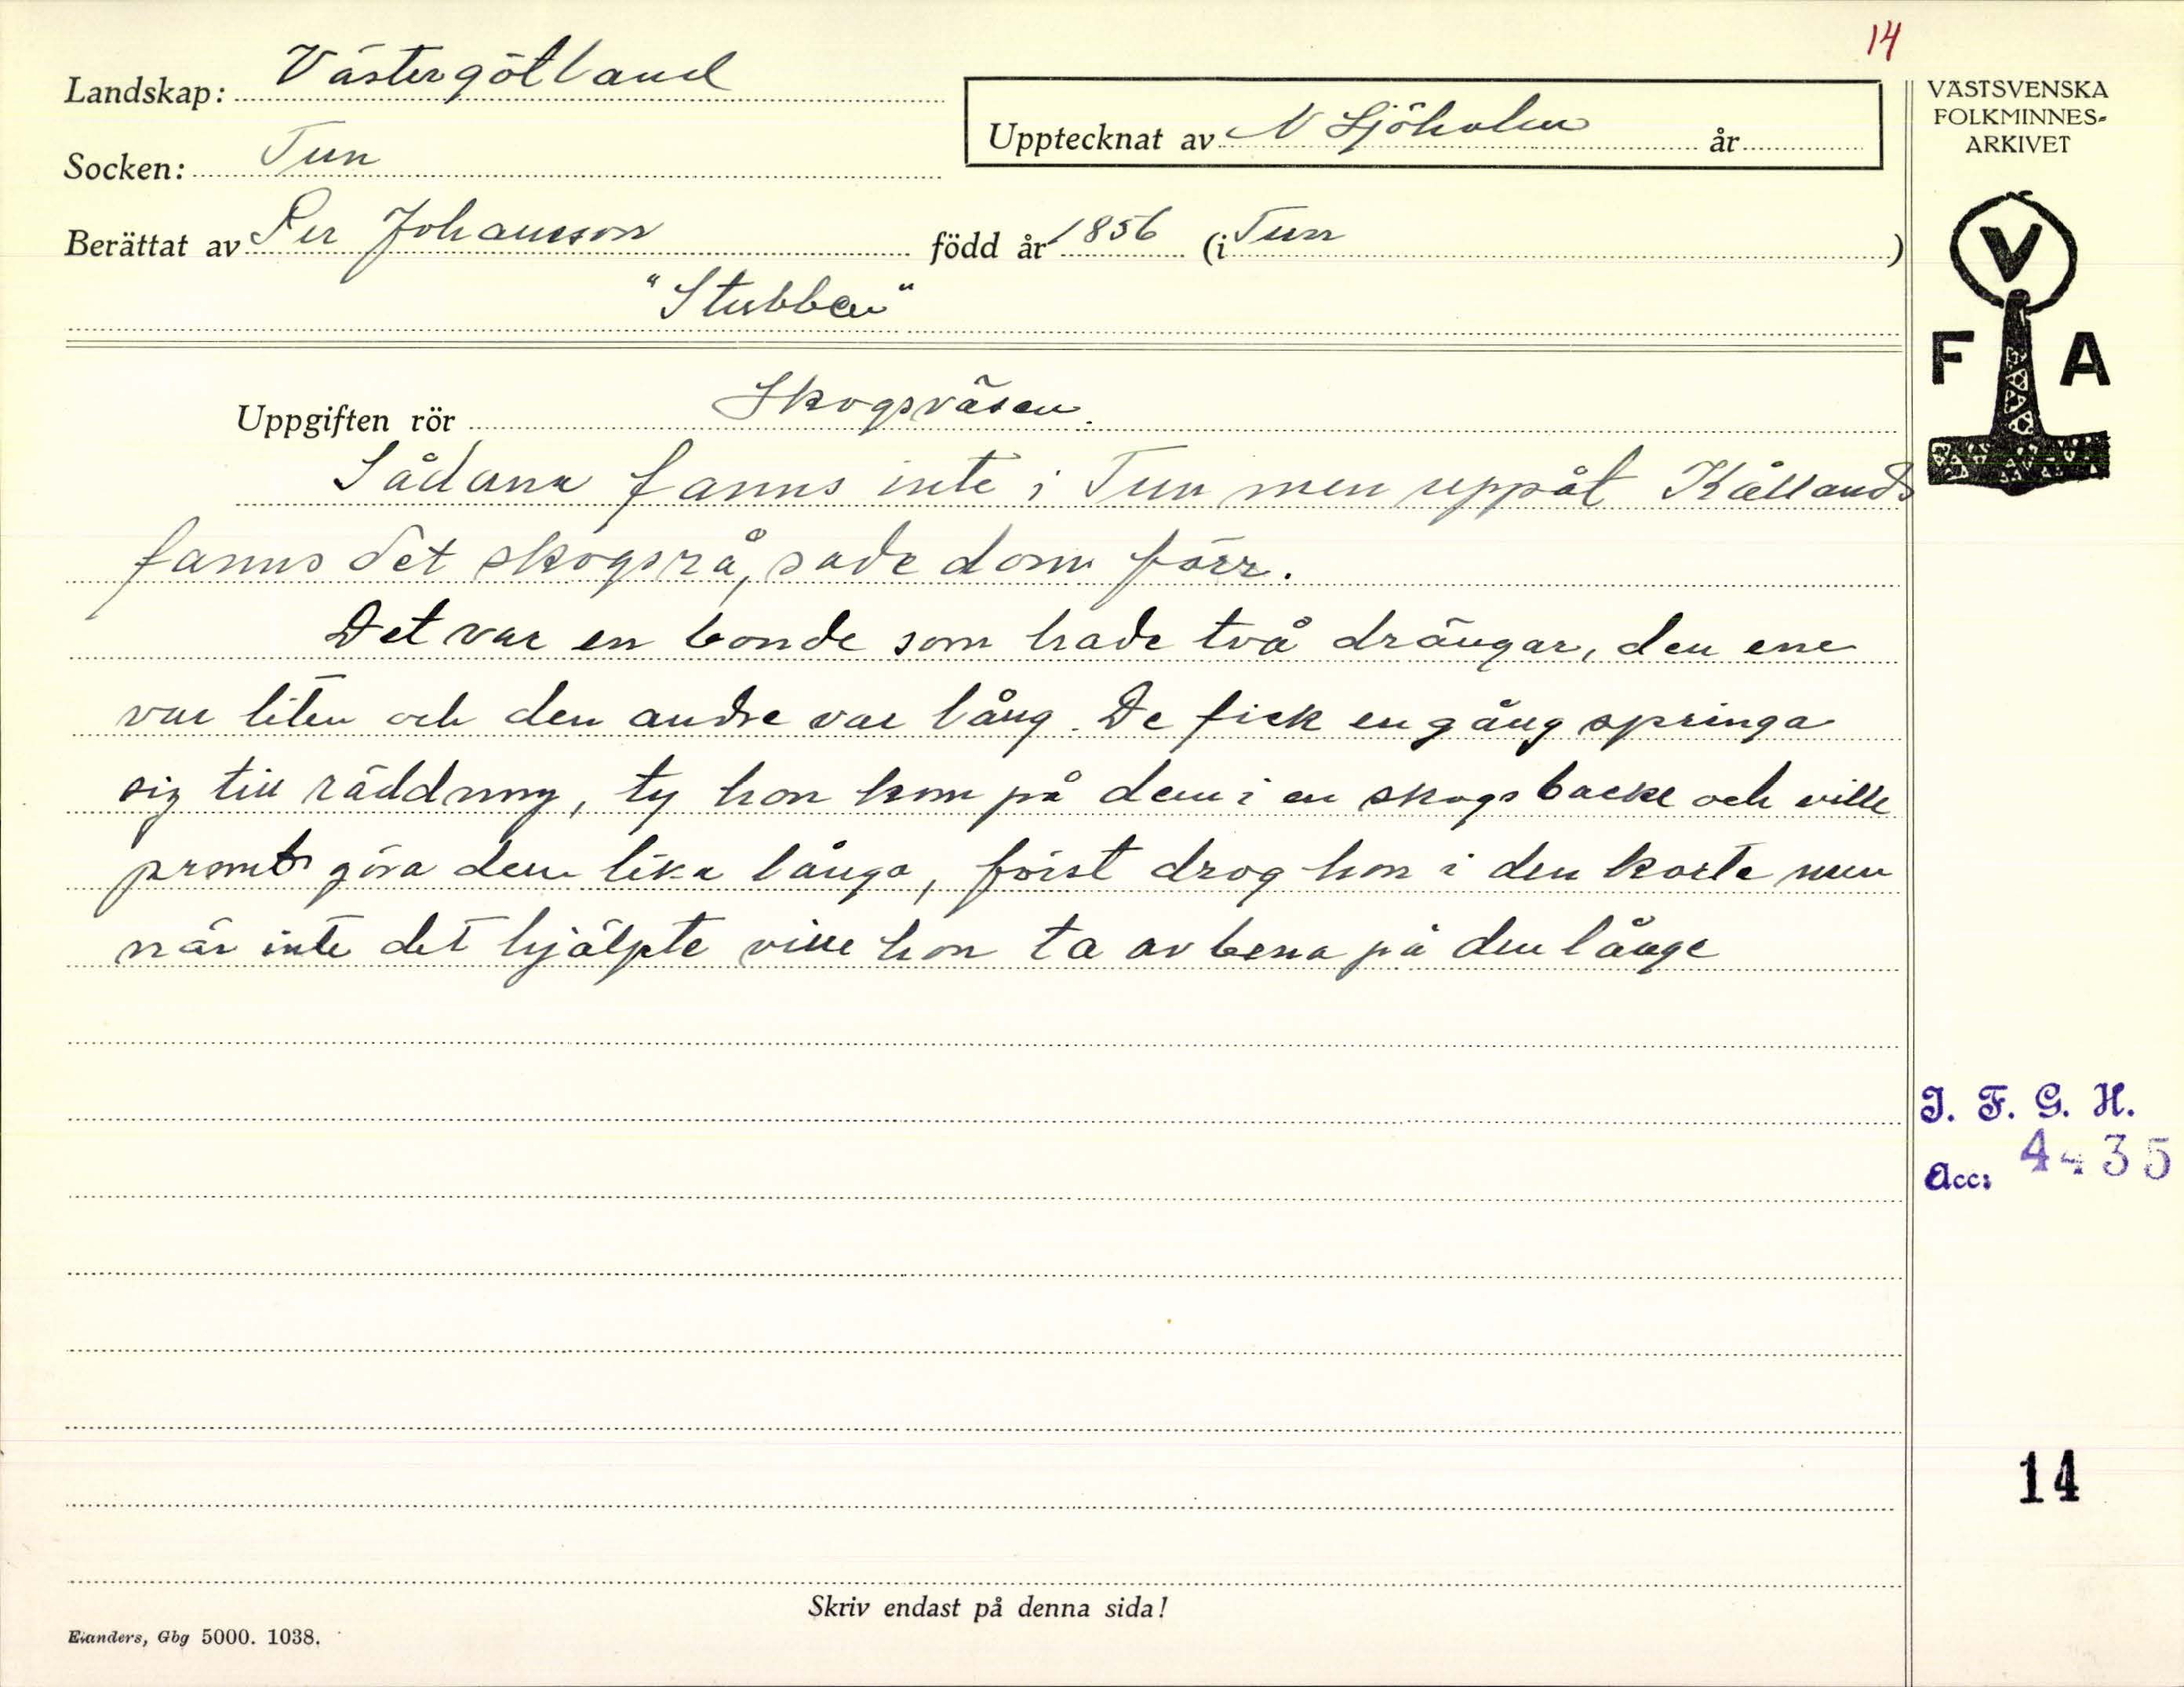 14
Landskap: Västergötland
Socken: Tun
Upptecknat av N Sjöholm år
Berättat av Per Johansson född år 1856 (i Tun)
"Stubben"
Uppgiften rör Skogsväsen.
Sådana fanns inte i Tun men uppåt Kållands
fanns det skogsrå, sade dom förr.
Det var en bonde som hade två drängar, den ene
var liten och den andre var lång. De fick en gång springa
sig till räddning, ty hon kom på dem i en skogsbacke och ville
promt göra dem lika långa, först drog hon i den korte men
när inte det hjälpte ville hon ta av bena på den långe
Skriv endast på denna sida!
Elanders, Gbg 5000. 1038.
VÄSTSVENSKA
FOLKMINNES-
ARKIVET
V
F A
I. F. G. H.
Acc: 4435
14